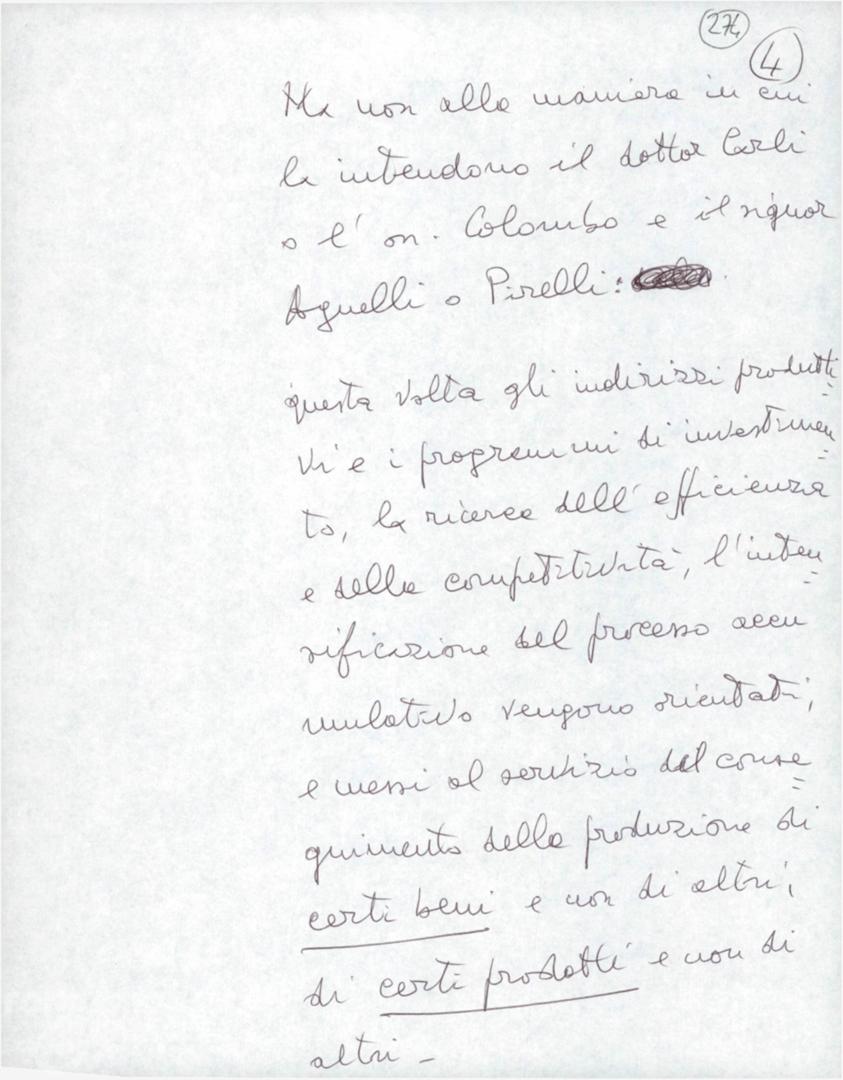 274
4
Ma non alla maniera in cui
la intendono il dottor Carli
o l'on. Colombo e il signor
Agnelli o Pirelli:
questa volta gli indirizzi produtti=
vi e i programmi di investimen=
to, la ricerca dell'efficienza
e della competitività, l'inten=
sificazione del processo accu
mulativo vengono orientati,
e messi al servizio del conse=
guimento della produzione di
certi beni e non di altri,
di certi prodotti e non di
altri -